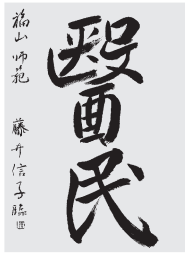 醫民
福山師範　藤井信子臨